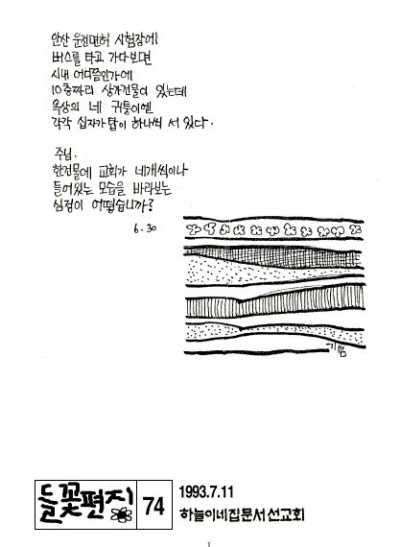 안산 운전면허 시험장에
버스를 타고 가다보면
시내 어디쯤인가에
10층짜리 상가건물이 있는데
옥상의 네 귀퉁이엔
각각 십자가탑이 하나씩 서 있다.
주님.
한건물에 교회가 네개씩이나
들어있는 모습을 바라보는
심정이 어떻습니까?
6.30
기쁨
들꽃편지 74
1993.7.11
하늘이네집문서선교회
1